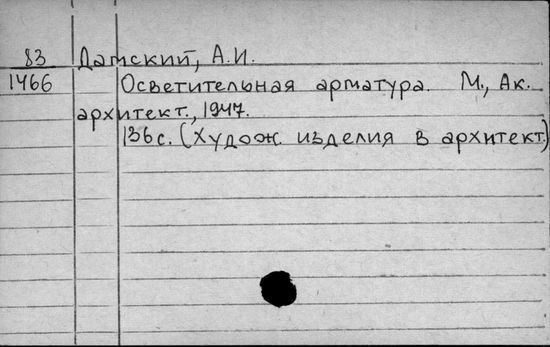 83 Датский, А.И.
1466 Осветительная арматура. М., Ак.
архитект., 1947.
136 с. (Худож. изделия в архитект.)